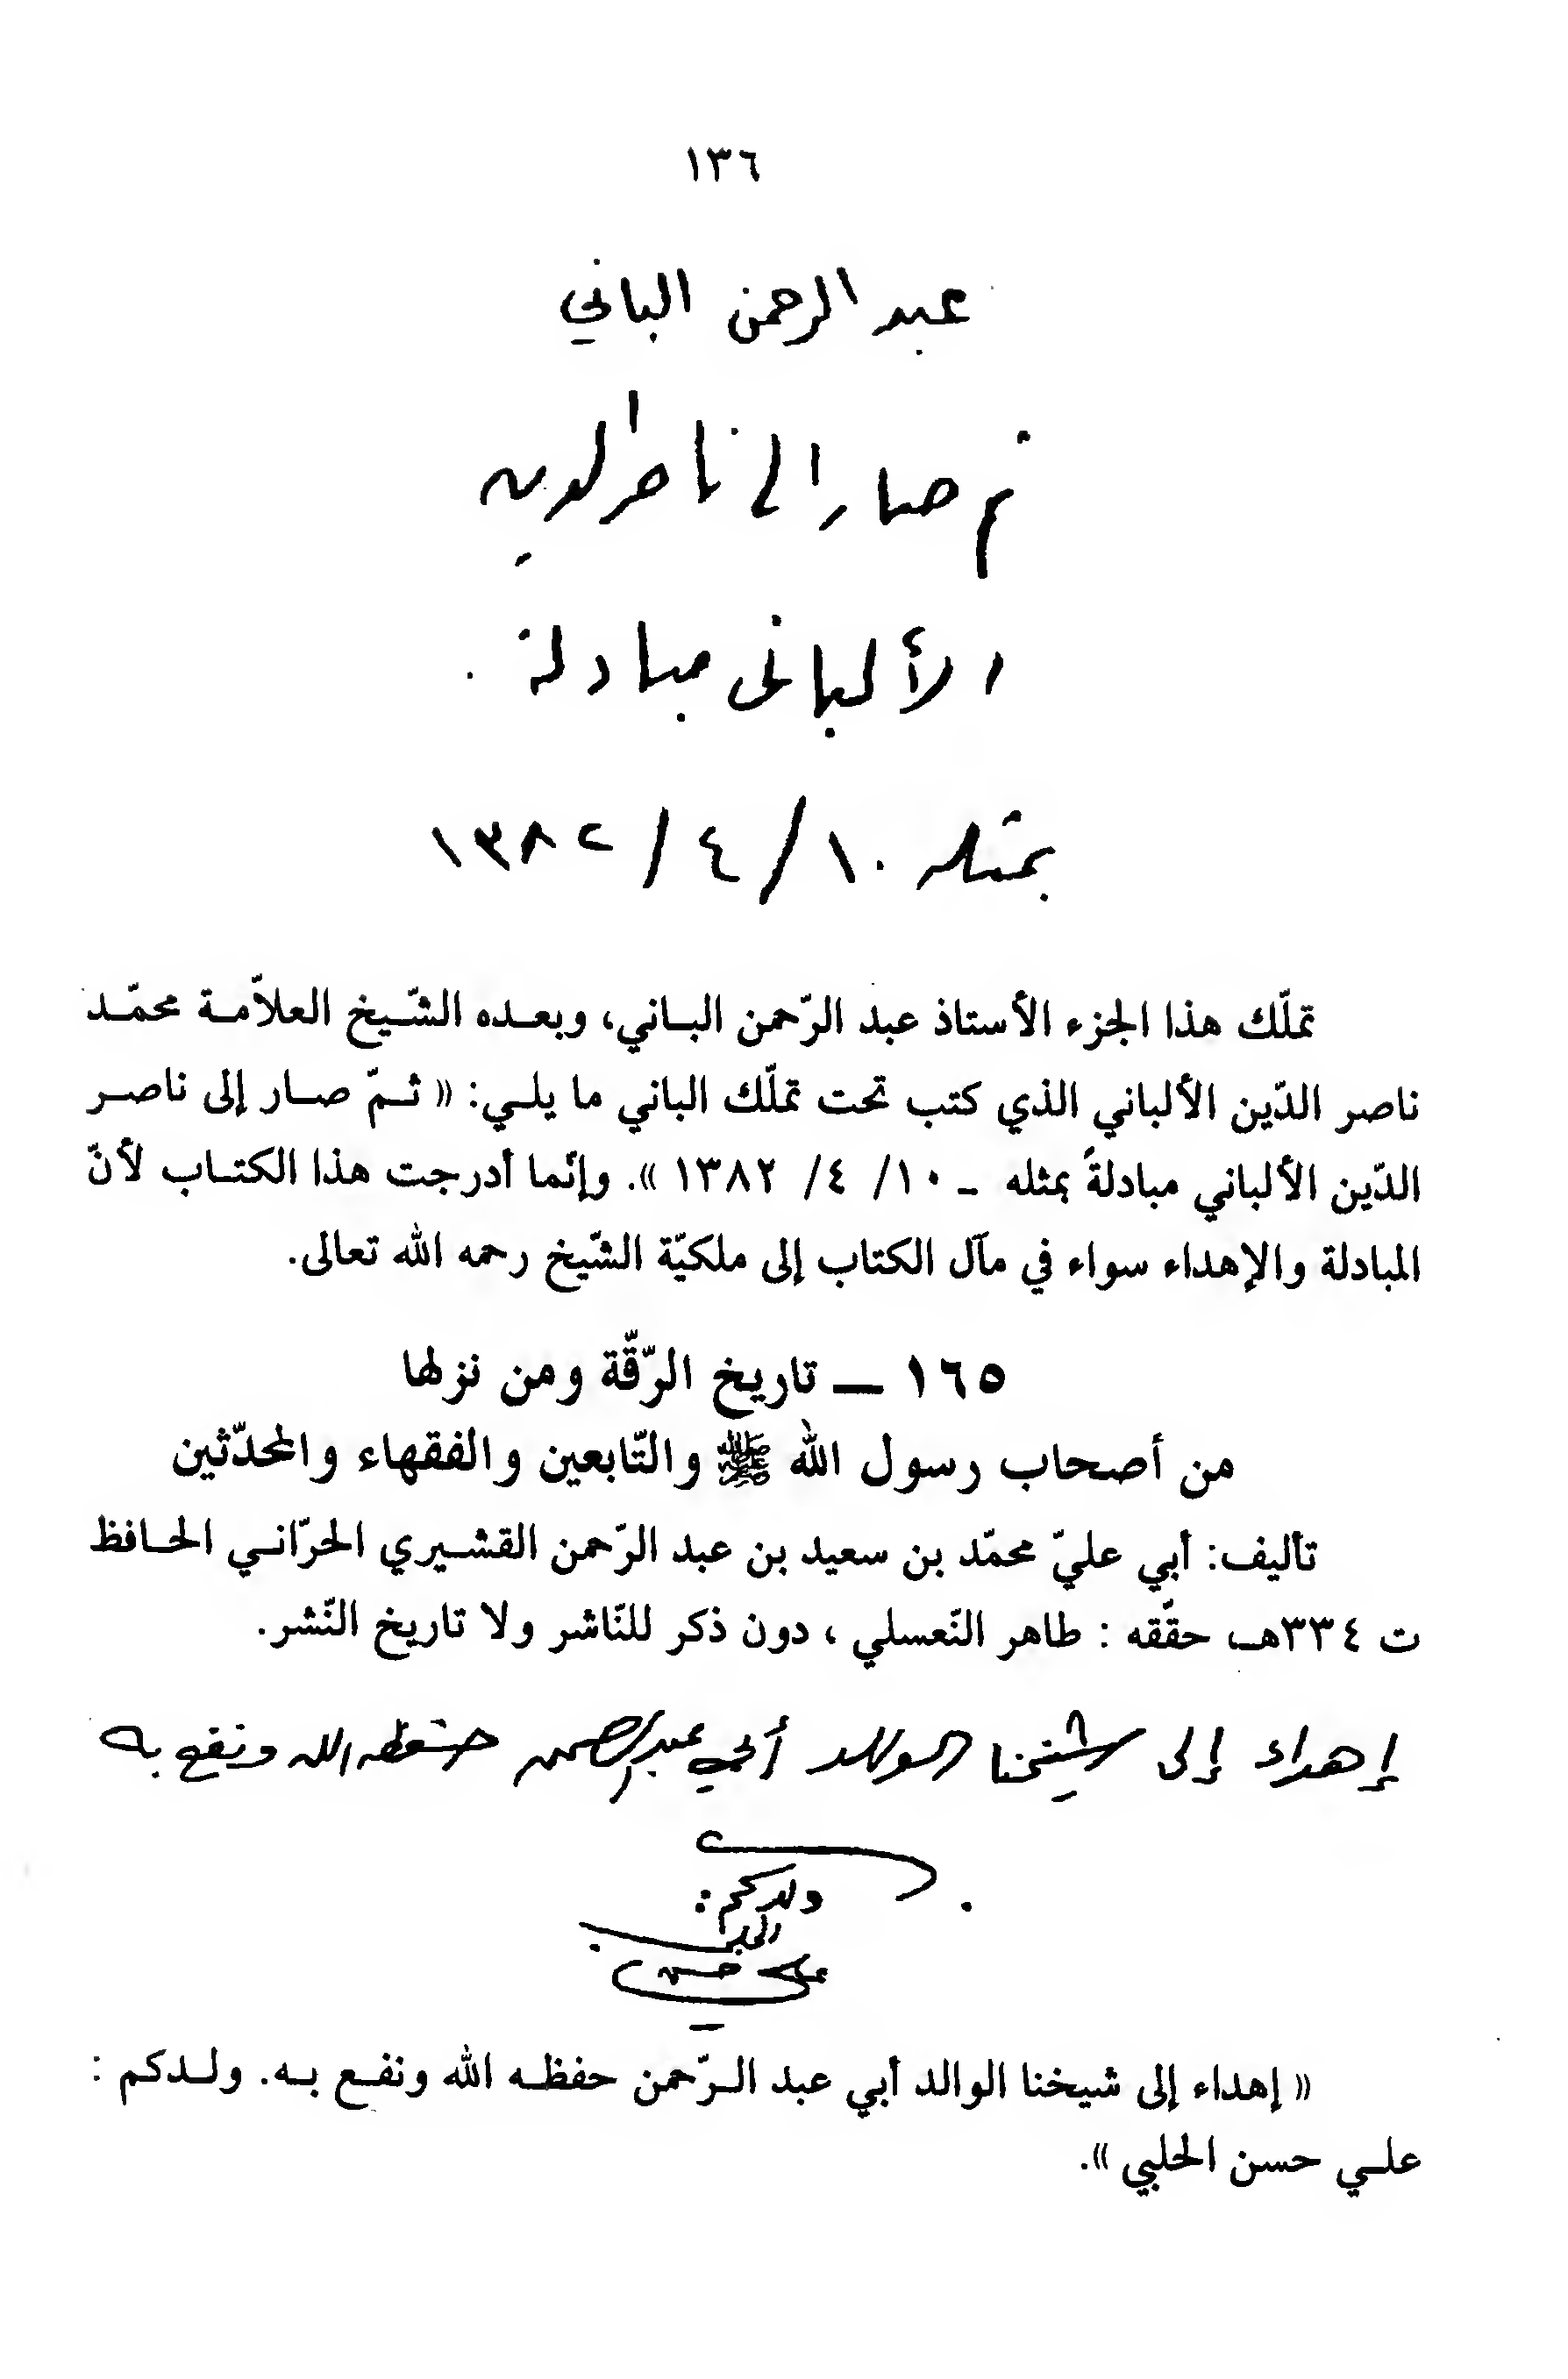 ١٣٦
عبد الرحمن الباني
ثم صار الى ناصر الدين
الألبانى مبادلة .
بمثله ١٠/ ٤/ ١٣٨٢
تملّك هذا الجزء الأستاذ عبد الرّحمن البـاني، وبعـده الشّـيخ العلاّمـة محمّـد
ناصر الدّين الألباني الذي كتب تحت تملّك الباني ما يلـي: « ثـمّ صـار إلى ناصـر
الدّين الألباني مبادلةً بمثله ـ ١٠/ ٤/ ١٣٨٢ ». وإنّما أدرجت هذا الكتـاب لأنّ
المبادلة والإهداء سواء في مآل الكتاب إلى ملكيّة الشّيخ رحمه الله تعالى.
١٦٥ ــ تاريخ الرّقّة ومن نزلها
من أصحاب رسول الله ﷺ والتّابعين والفقهاء والمحدّثين
تأليف: أبي عليّ محمّد بن سعيد بن عبد الرّحمن القشـيري الحرّانـي الحـافظ
ت ٣٣٤هـ، حقّقه : طاهر النّعسلي ، دون ذكر للنّاشر ولا تاريخ النّشر.
إهداء إلى شيخنا الوالد أبي عبد الرحمن حفظه الله ونفع به
ولدكم :
الحلبي
علي حسن
« إهداء إلى شيخنا الوالد أبي عبد الـرّحمن حفظـه الله ونفـع بـه. ولـدكم :
علـي حسن الحلبي ».